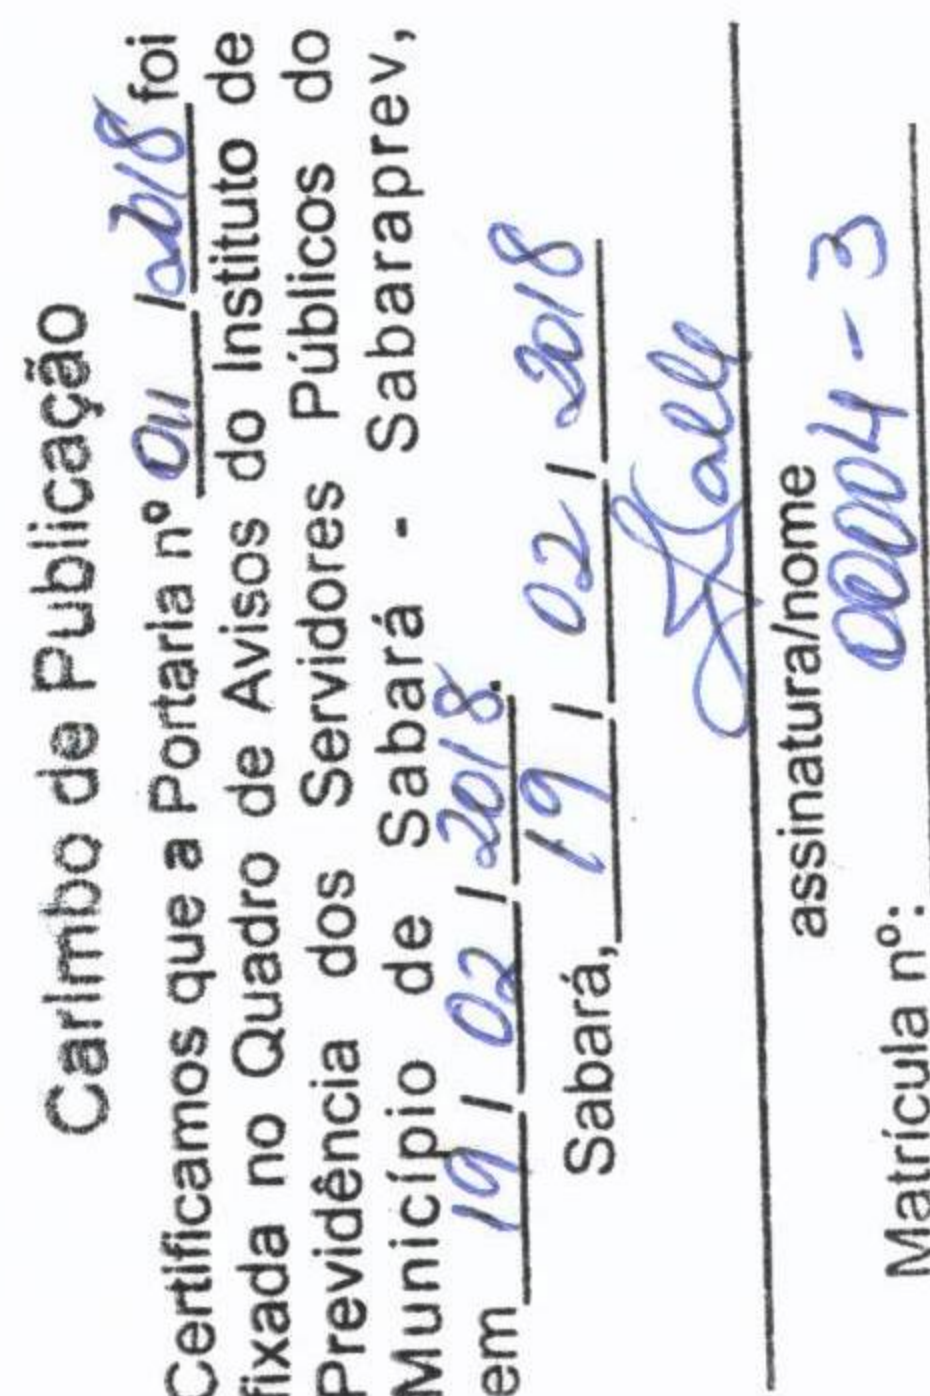 Carimbo de Publicação
Certificamos que a Portaria nº 011 /2018 foi
fixada no Quadro de Avisos do Instituto de
Previdência dos Servidores Públicos do
Município de Sabará - Sabaraprev,
em 19 / 02 / 2018.
Sabará, 19 / 02 / 2018
assinatura/nome
Matrícula nº: 00004-3